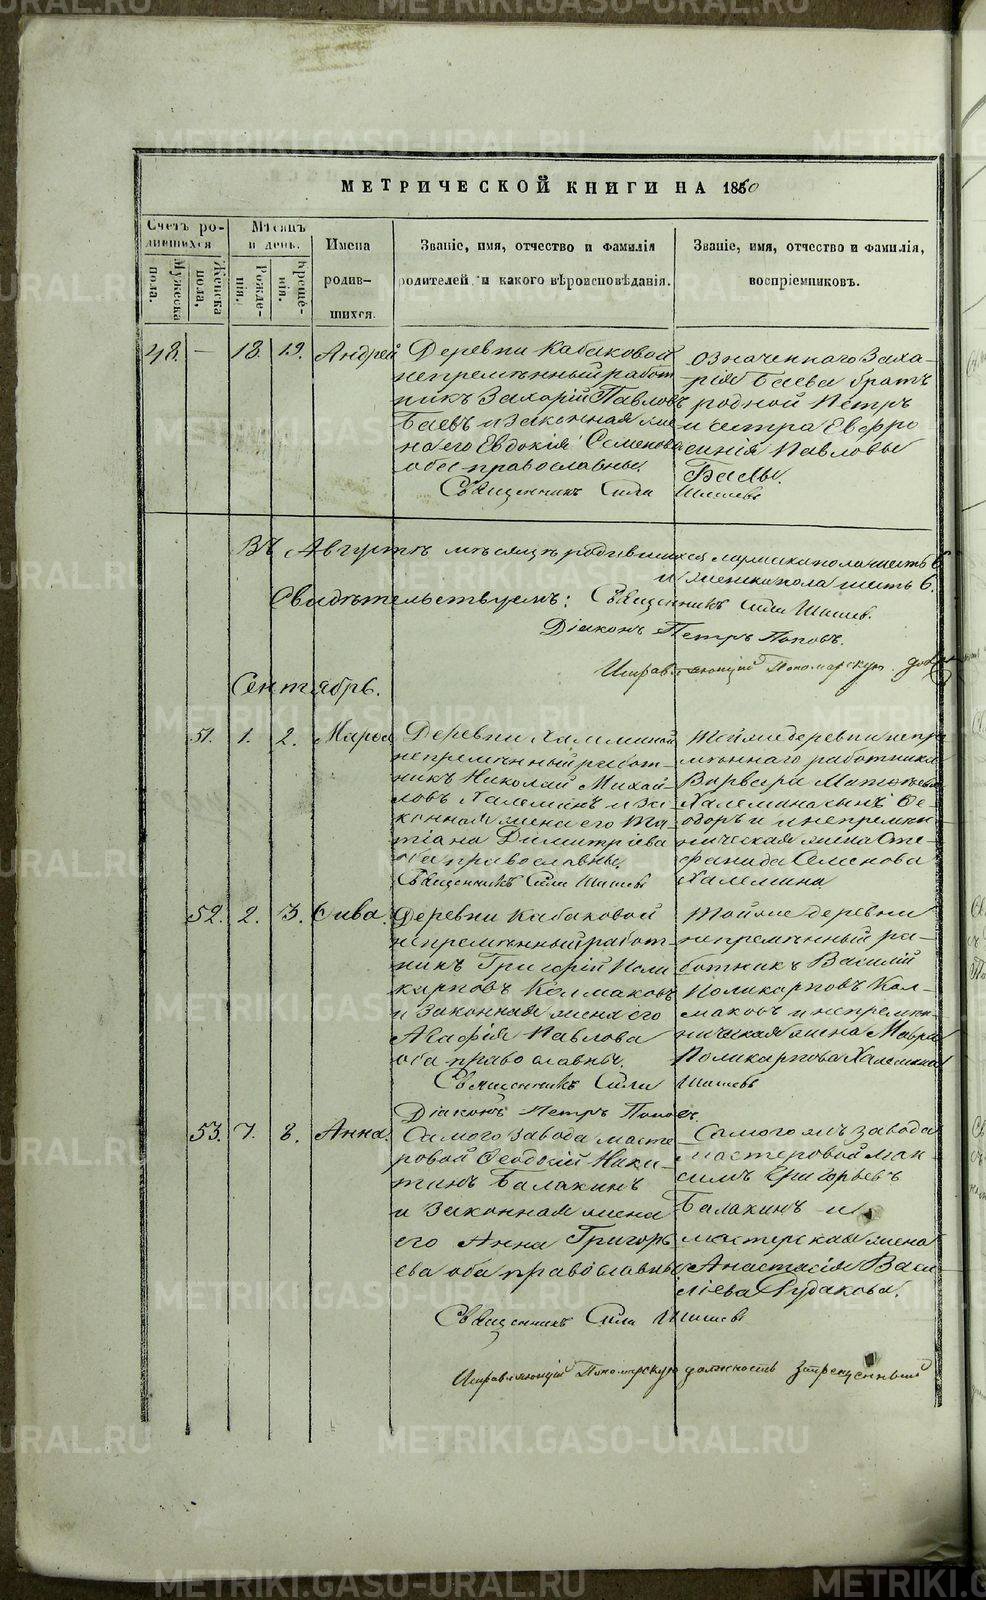 METRIKI.GASO-URAL.RU
МЕТРИЧЕСКОЙ КНИГИ НА 1860
Счетъ ро-
дившихся
Мужеска пола.
Женска пола.
Мѣсяцъ
и день.
Рожде-
нія.
Креще-
нія.
Имена
родив-
шихся.
Званіе, имя, отчество и фамилія
родителей и какого вѣроисповѣданія.
Званіе, имя, отчество и фамилія,
воспріемниковъ.
48. — 18. 19. Андрей
Деревни Кабаковой
непремѣнный работ
никъ Захарій Павловъ
Баевъ и законная же
на его Евдокія Семенова
оба православные.
означеннаго Заха-
рія Баева братъ
родной Петръ
и сестра Евфро
синія Павловы
Баевы.
Священникъ Сила Шишевъ
Въ Августѣ мѣсяцѣ родившихся мужеска пола шесть 6
и женска пола шесть 6.
Свидѣтельствуемъ: Священникъ Сила Шишевъ.
Діаконъ Петръ Поповъ.
Исправляющій Пономарскую
Сентябрь.
51. 1. 2. Марѳа
Деревни Халеминой
непремѣнный работ-
никъ Николай Михай-
ловъ Халеминъ и за-
конная жена его Та-
тіана Димитріева
оба православные.
Той же деревни непре
мѣннаго работника
Халемина сынъ Ѳе-
одоръ и непремѣн-
ническая жена Сте-
фанида Семенова
Халемина
Священникъ Сила Шишевъ
52. 2. 3.
Деревни Кабаковой
непремѣнный работ-
никъ Григорій Поли
карповъ Колмаковъ
и законная жена его
Агафія Павлова
оба православные.
Той же деревни
непремѣнный ра-
ботникъ Василій
Поликарповъ Кол-
маковъ и непремѣн-
ническая жена Мавра
Поликарпова Халемина
Священникъ Сила Шишевъ
Діаконъ Петръ Поповъ.
53. 7. 8. Анна.
Самого завода масте
ровой Ѳеодосій Ники-
тинъ Балакинъ
и законная жена
его Анна Григорь
ева оба православные.
Самого жъ завода
мастеровой Мак-
симъ Григорьевъ
Балакинъ и
мастерская жена
Анастасія Васи
ліева Рудакова.
Священникъ Сила Шишевъ
Исправляющій Пономарскую должность